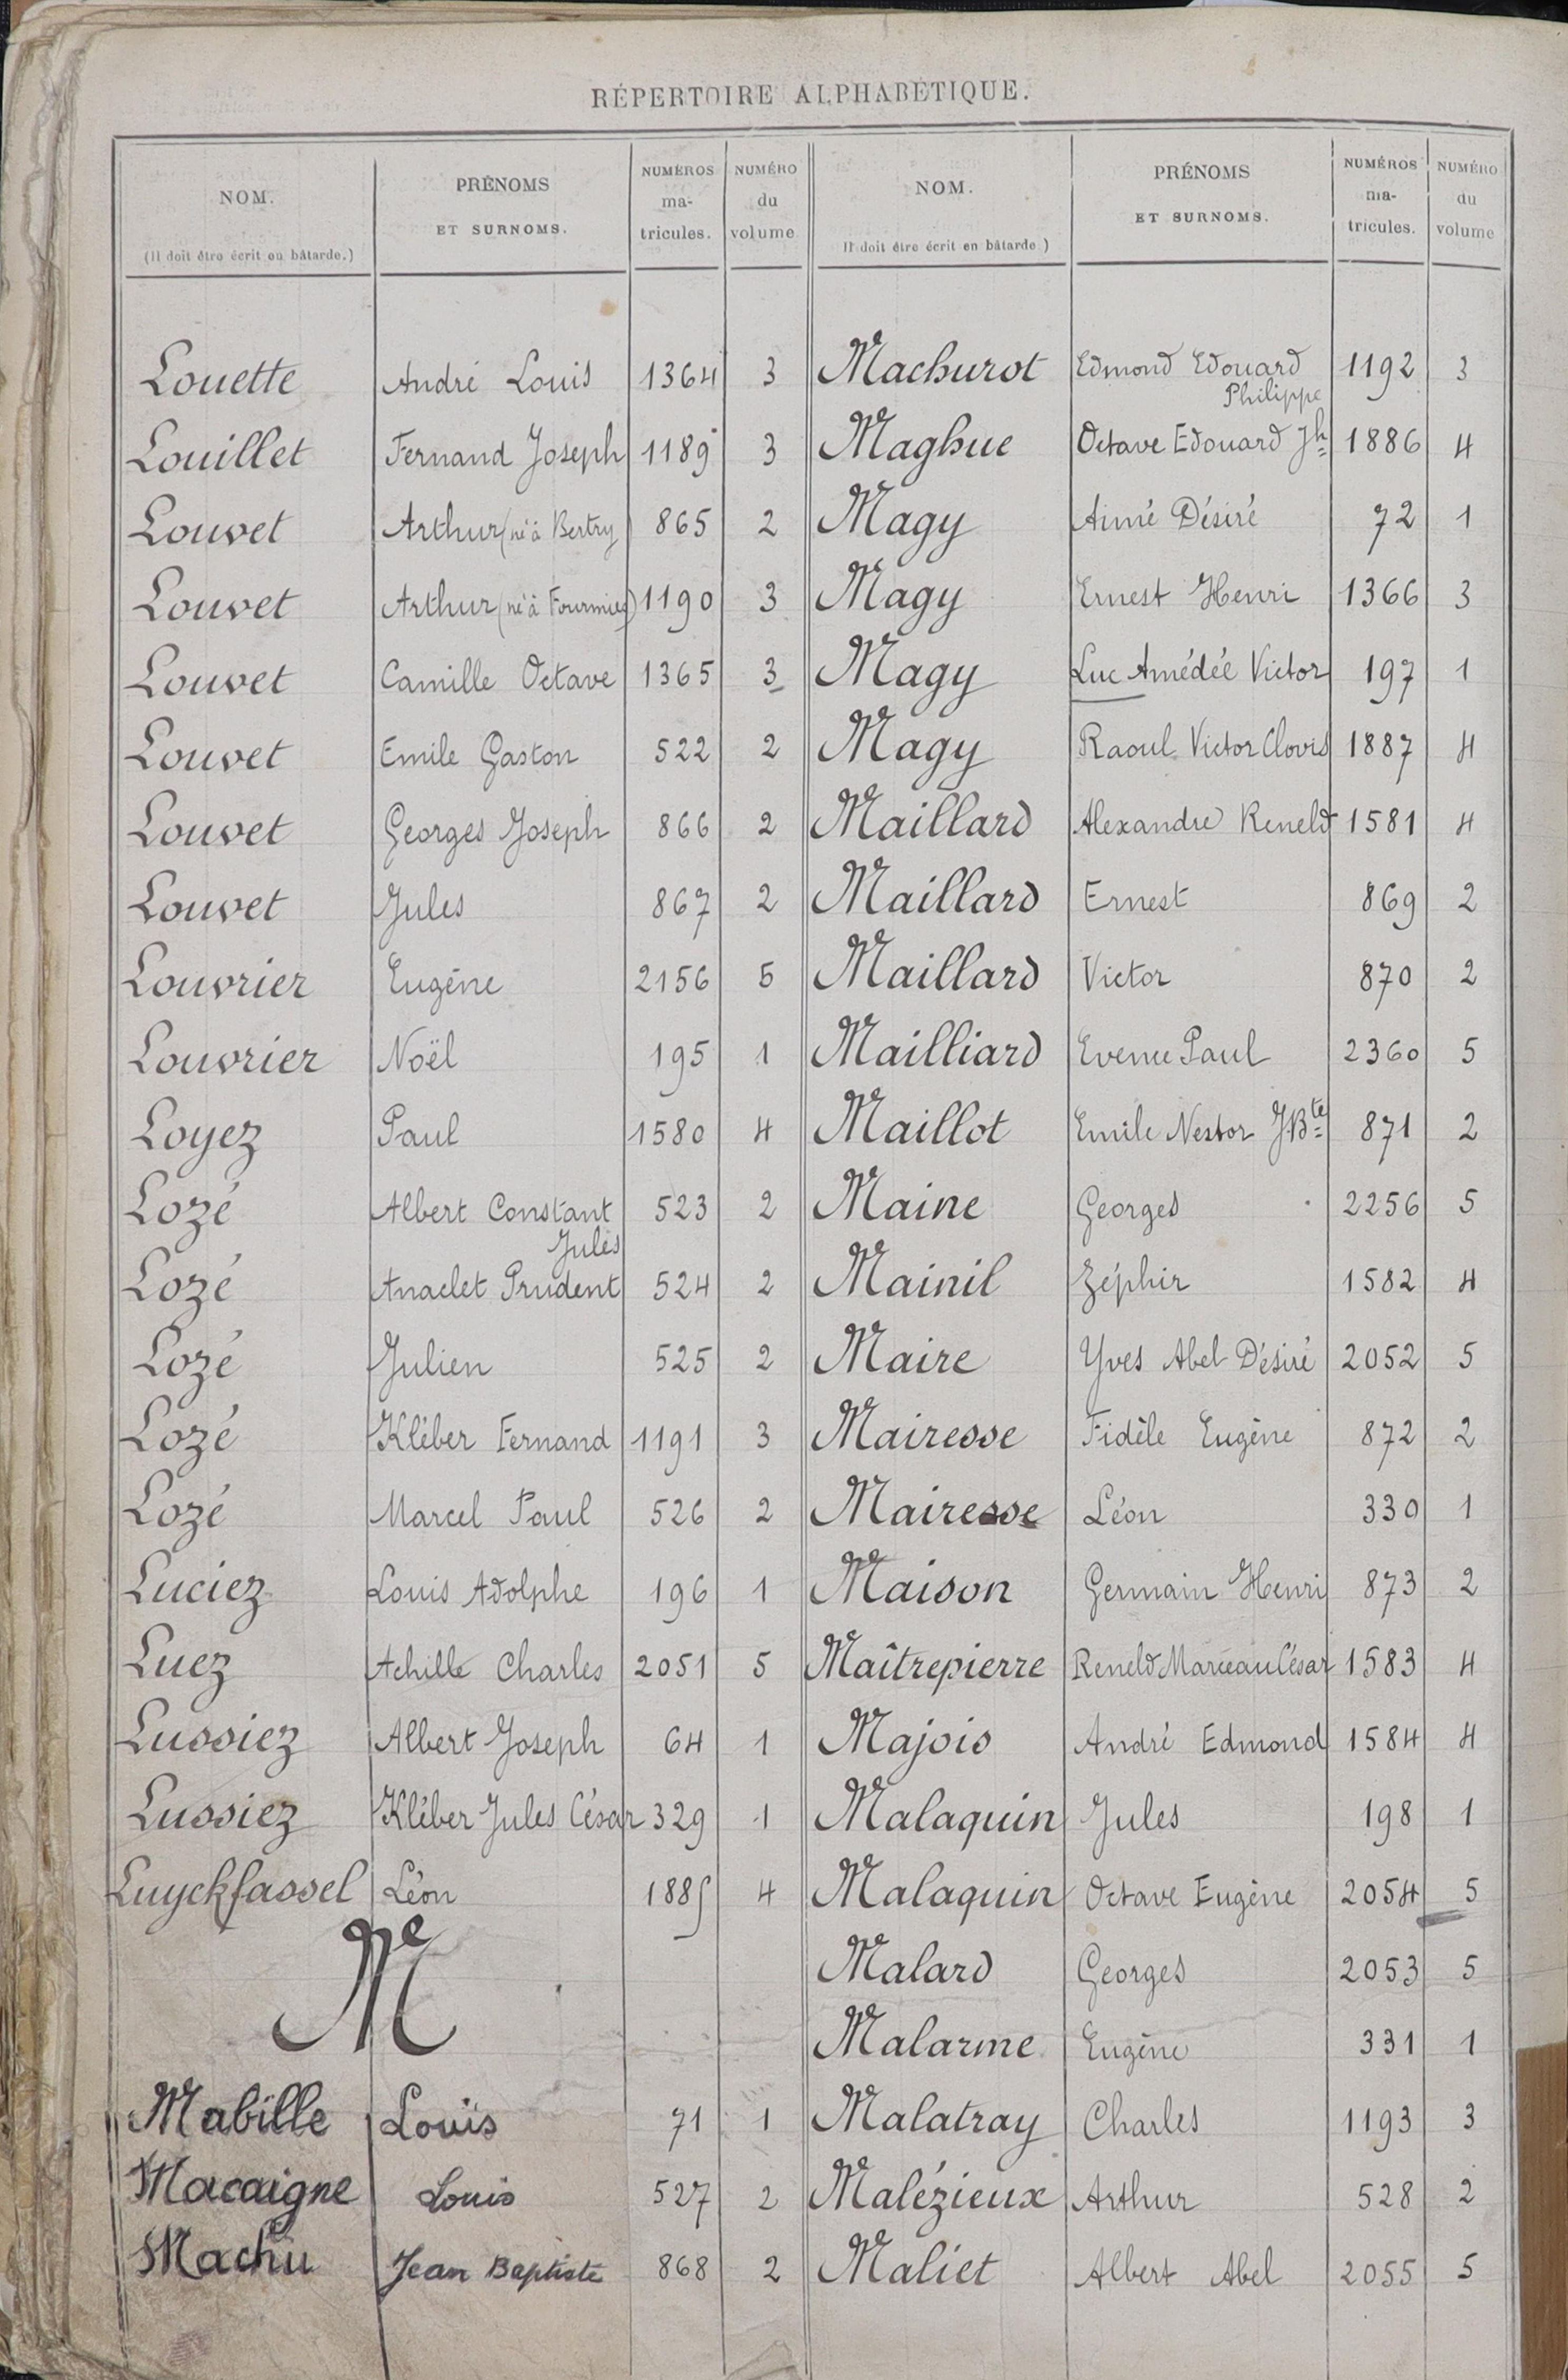 RÉPERTOIRE ALPHABÉTIQUE.
NOM. (Il doit être écrit en bâtarde.) PRÉNOMS ET SURNOMS. NUMÉROS ma-tricules. NUMÉRO du volume
Louette André Louis 1364 3
Louillet Fernand Joseph 1189 3
Louvet Arthur (né à Bertry) 865 2
Louvet Arthur (né à Fourmies) 1190 3
Louvet Camille Octave 1365 3
Louvet Emile Gaston 522 2
Louvet Georges Joseph 866 2
Louvet Jules 867 2
Louvrier Eugène 2156 5
Louvrier Noël 195 1
Loyez Paul 1580 4
Lozé Albert Constant 523 2
Jules
Lozé Anaclet Prudent 524 2
Lozé Julien 525 2
Lozé Kléber Fernand 1191 3
Lozé Marcel Paul 526 2
Luciez Louis Adolphe 196 1
Luez Achille Charles 2051 5
Lussiez Albert Joseph 64 1
Lussiez Kléber Jules César 329 1
Luyckfassel Léon 1885 4
M
Mabille Louis 71 1
Macaigne Louis 527 2
Machu Jean Baptiste 868 2
NOM. Il doit être écrit en bâtarde) PRÉNOMS ET SURNOMS. NUMÉROS ma-tricules. NUMÉRO du volume
Machurot Edmond Edouard 1192 3
Philippe
Maghue Octave Edouard Jh 1886 4
Magy Aimé Désiré 72 1
Magy Ernest Henri 1366 3
Magy Luc Amédée Victor 197 1
Magy Raoul Victor Clovis 1887 4
Maillard Alexandre Reneld 1581 4
Maillard Ernest 869 2
Maillard Victor 870 2
Mailliard Paul 2360 5
Maillot Emile Nestor J Bte 871 2
Maine Georges 2256 5
Mainil Zéphir 1582 4
Maire Yves Abel Désiré 2052 5
Mairesse Fidèle Eugène 872 2
Mairesse Léon 330 1
Maison Germain Henri 873 2
Maîtrepierre Reneld Marceau César 1583 4
Majois André Edmond 1584 4
Malaquin Jules 198 1
Malaquin Octave Eugène 2054 5
Malard Georges 2053 5
Malarme Eugène 331 1
Malatray Charles 1193 3
Malézieux Arthur 528 2
Maliet Albert Abel 2055 5